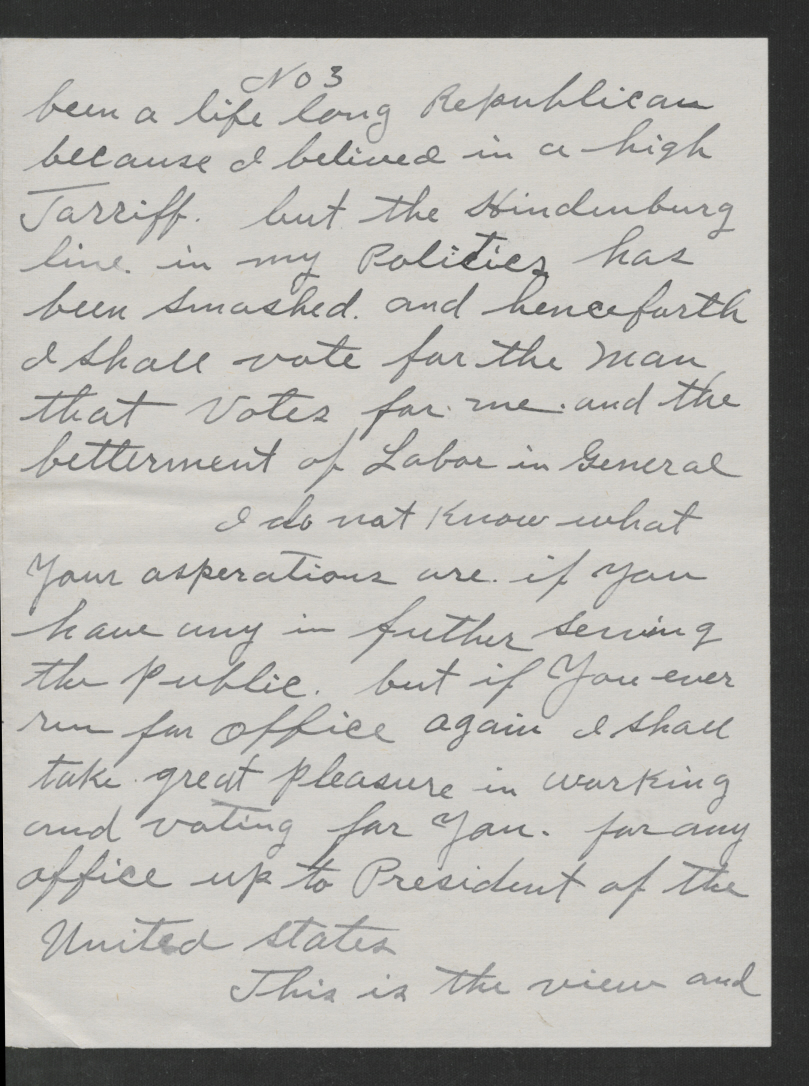 No 3
been a life long Republican
because I belived in a high
Tarriff. but the Hindenburg
line. in my Politics has
been smashed. and henceforth
I shall vote for the man
that Votes for me. and the
betterment of Labor in General
I do not Know what
Your asperations are. if you
have any in futher serving
the public. but if You ever
run for office again I shall
take great pleasure in working
and voting for You. for any
office up to President of the
United States
This is the view and